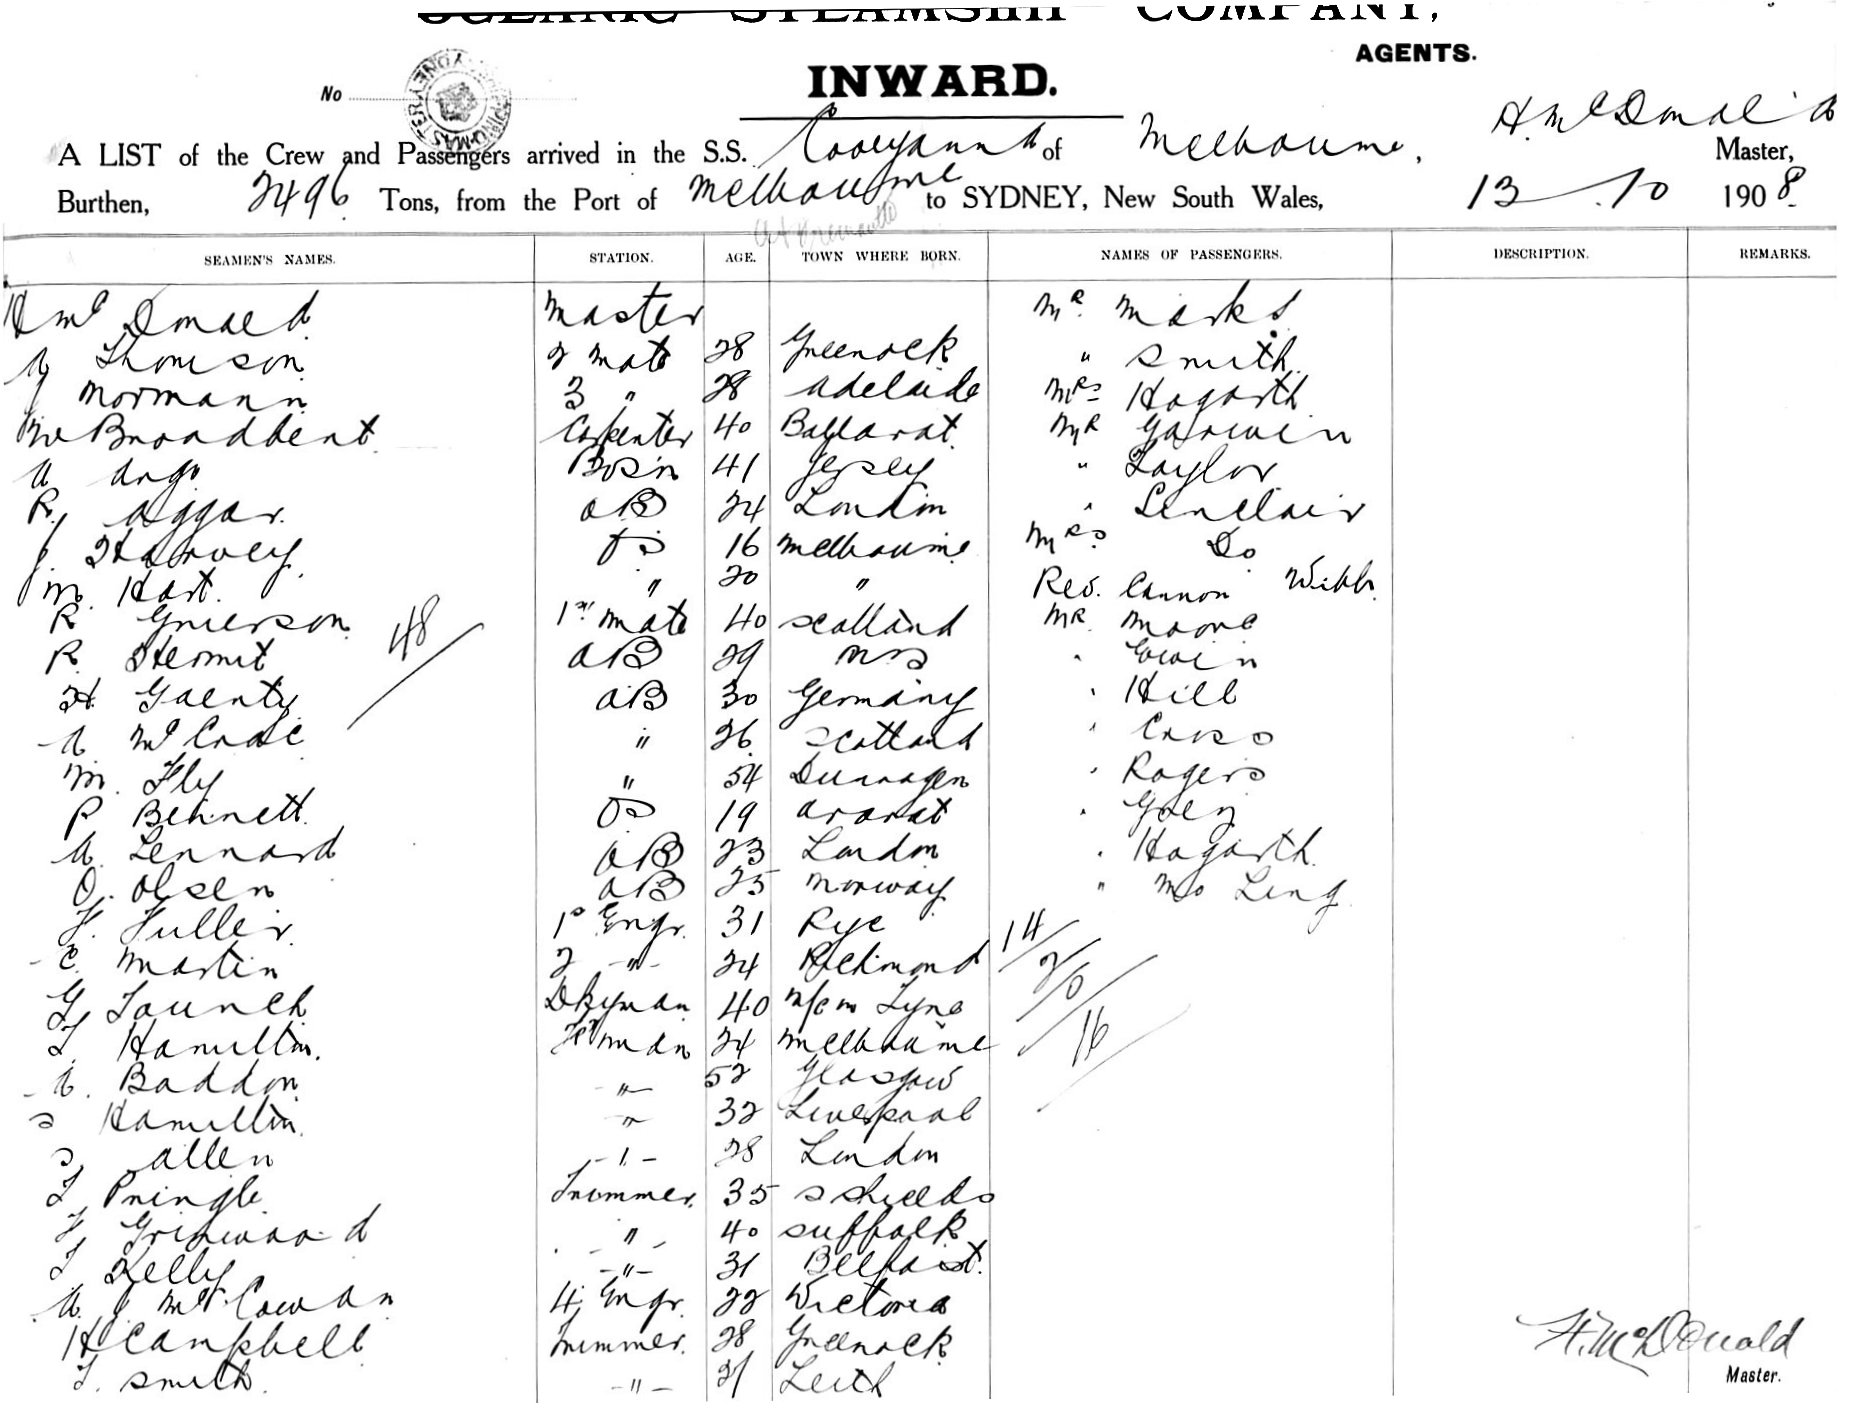 OCEANIC STEAMSHIP COMPANY,
AGENTS.
INWARD.
No
H. McDonald
A LIST of the Crew and Passengers arrived in the S.S. Cooeyanna of Melbourne, Master,
Burthen, 2496 Tons, from the Port of Melbourne to SYDNEY, New South Wales, 13 . 10 1908.
at Fremantle
SEAMEN'S NAMES. STATION. AGE. TOWN WHERE BORN. NAMES OF PASSENGERS. DESCRIPTION. REMARKS.
H McDonald Master Mr. Marks
A Thomson 2 Mate 28 Greenock " Smith
J Normann 3 " 28 Adelaide Mrs Hogarth
W Broadbent Carpenter 40 Ballarat Mr Garwin
A Ango Bosn 41 Jersey " Taylor
R. Aggar. AB 24 London " Sinclair
J. Harvey OS 16 Melbourne Mrs. Do
M. Hart. " 20 " Rev. Cannon Webb
R Grierson 1st Mate 40 Scotland Mr. Moore
48
R Hermit AB 29 " Ewin
H Gaenty AB 30 Germany " Hill
A McCrae " 26 Scotland " Cross
M. Fly " 54 " Rogers
P Bennett. OS 19 Ararat " Grey
A. Lennard AB 23 London " Hogarth
O. Olsen AB 25 Norway " Mo Ling
F. Fuller. 1s Engr. 31 Rye 14
C. Martin 2 -"- 24 Richmond 2/0
G Launch Dkyman 40 N/C on Tyne
T. Hamilton. Fireman 24 Melbourne 16
A. Baddon -"- 52 Glasgow
S Hamilton. -"- 32 Liverpool
S. Allen -"- 28 London
T Pringle Trimmer. 35 S Shields
F, Grinwood -"- 40 Suffolk
T Kelly -"- 31 Belfast.
A J McCowan 4 Engr. 22 Victoria
H Campbell Trimmer. 28 Greenock
T. Smith. -"- 21 Leith
H. McDonald
Master.